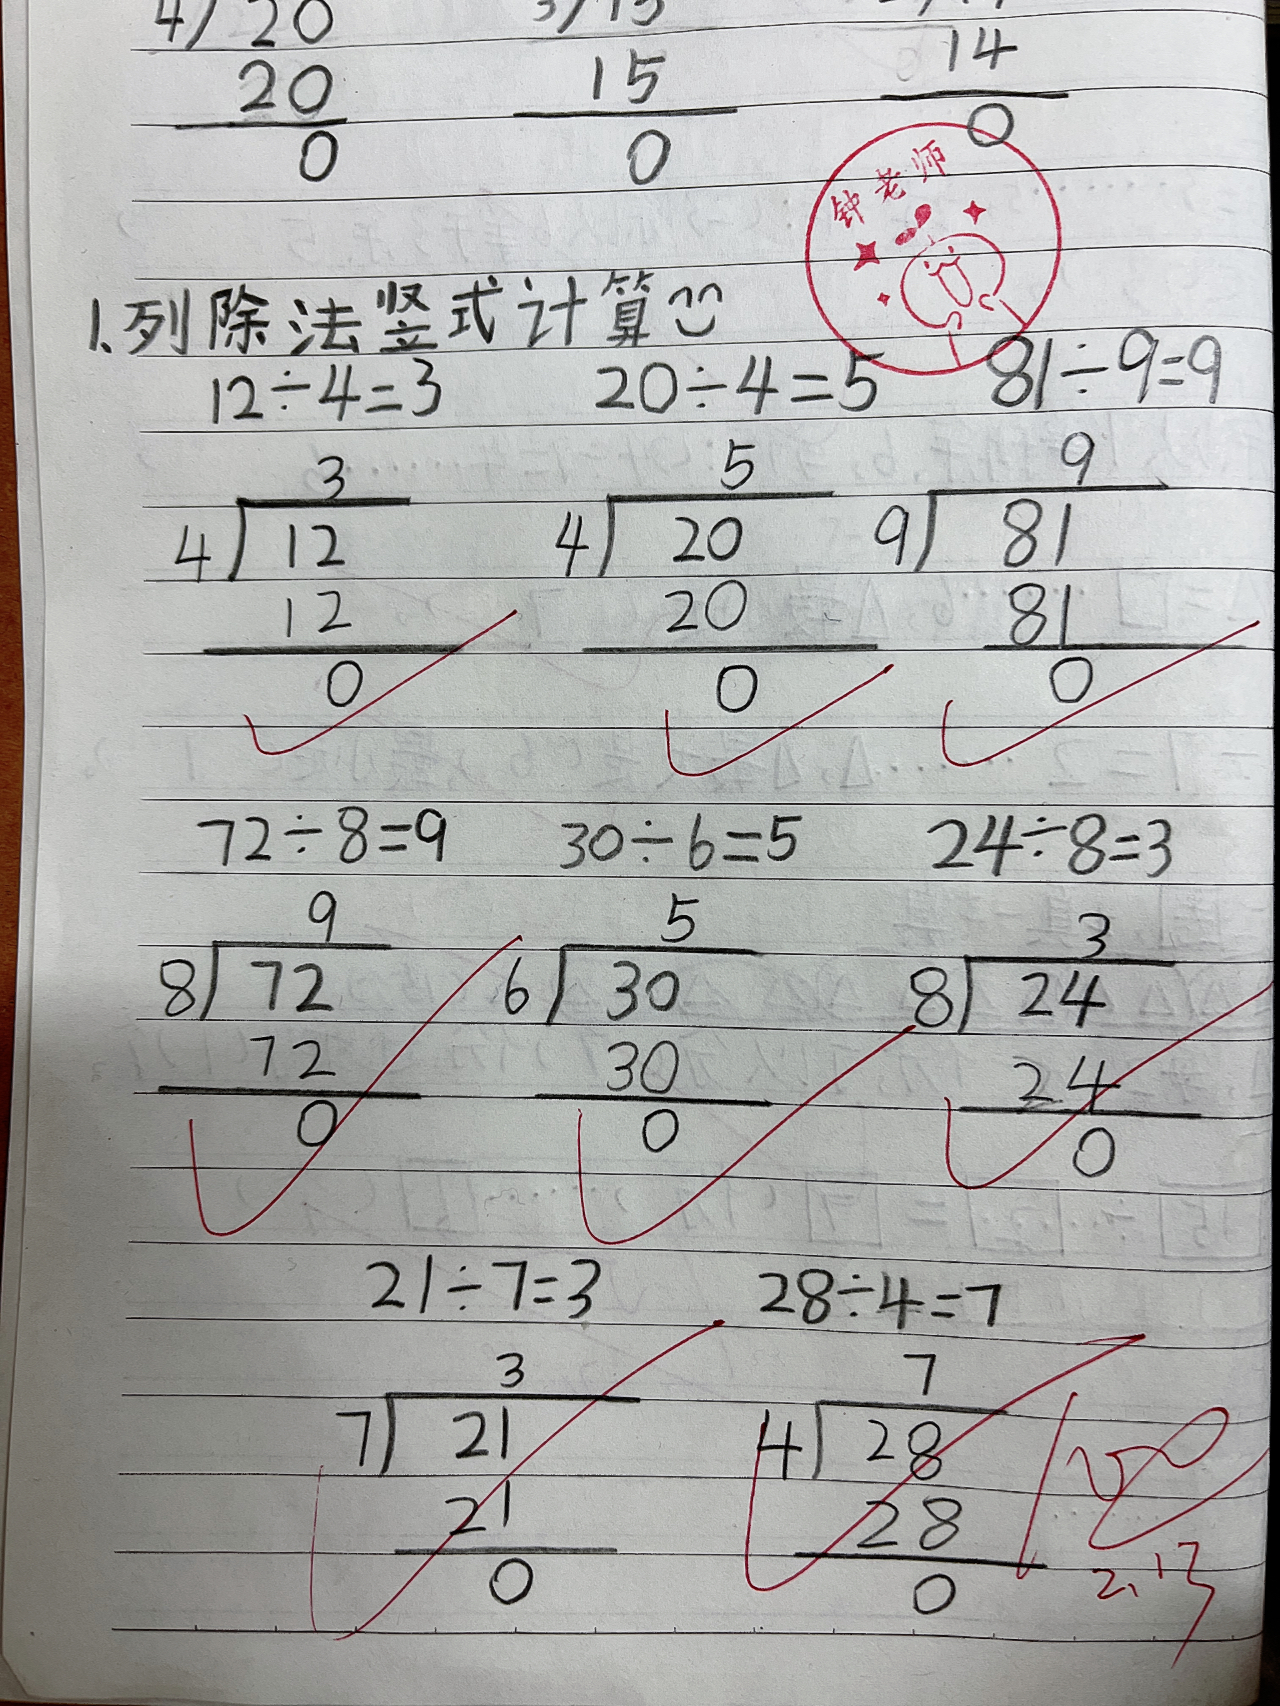 4 20
15
20 15 14
0 0 0
钟老师
1.列除法竖式计算
12÷4=3 20÷4=5 81÷9=9
3 5 9
4 12 4 20 9 81
12 20 81
0 0 0
72÷8=9 30÷6=5 24÷8=3
9 5 3
8 72 6 30 8 24
72 30 24
0 0 0
21÷7=3 28÷4=7
3 7
7 21 4 28
21 28
0 0
100